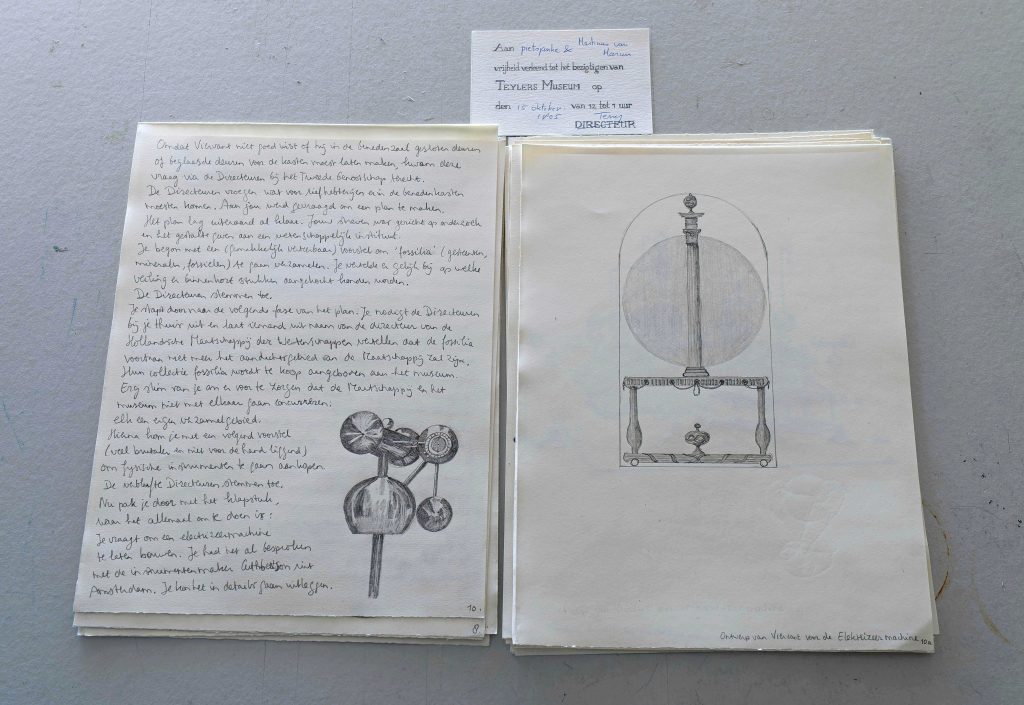 Aan pietsjanke & Martinus van
Marum
vrijheid verleend tot het bezigtigen van
TEYLERS MUSEUM op
den 15 oktober van 12 tot 1 uur
1805
DIRECTEUR
Omdat Viervant niet goed wist of hij in de benedenzaal gesloten deuren
of beglaasde deuren voor de kasten moest laten maken, kwam deze
vraag via de Directeuren bij het Tweede Genootschap terecht.
De Directeuren vroegen wat voor liefhebberijen er in de benedenkasten
moesten komen. Aan jou werd gevraagd om een plan te maken.
Het plan lag uiteraard al klaar. Jouw streven was gericht op onderzoek
en het gestalte geven aan een wetenschappelijk instituut.
Je begon met een (gemakkelijk verteerbaar) voorstel om 'fossilia' (gesteenten,
mineralen, fossielen) te gaan verzamelen. Je vertelde er gelijk bij op welke
veiling er binnenkort stukken aangekocht konden worden.
De Directeuren stemmen toe.
Je stapt door naar de volgende fase van het plan. Je nodigt de Directeuren
bij je thuis uit en laat iemand uit naam van de directeur van de
Hollandsche Maatschappij der Wetenschappen vertellen dat de fossilia
voortaan niet meer het aandachtsgebied van de Maatschappij zal zijn.
Hun collectie fossilia wordt te koop aangeboden aan het museum.
Erg slim van je om er voor te zorgen dat de Maatschappij en het
museum niet met elkaar gaan concurreren:
elk een eigen verzamelgebied.
Hierna kom je met een volgend voorstel
(veel brutaler en niet voor de hand liggend)
om fysische instrumenten te gaan aankopen.
De verblufte Directeuren stemmen toe.
Nu pak je door met het klapstuk,
waar het allemaal om te doen is:
Je vraagt om een electrizeermachine
te laten bouwen. Je had het al besproken
met de instrumentenmaker Cuthbertson uit
Amsterdam. Je kon het in details gaan uitleggen.
10.
8.
Ontwerp van Viervant voor de Elektrizeermachine
10a